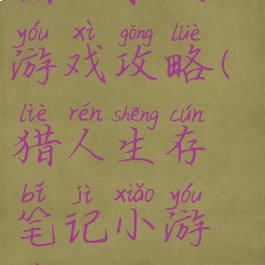 yóu xì gōng lüè
游戏攻略(
liè rén shēng cún
猎人生存
bǐ jì xiǎo yóu
笔记小游